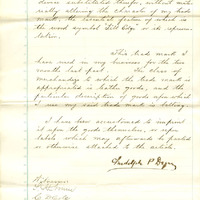 device substituted therefor, without mate-
rially altering the character of my trade
mark, the essential feature of which is
the word symbol "Elk City", or its represen-
tation.
This trade mark I
have used in my business for the two
months last past. The class of
merchandize to which the trade mark is
appropriated is leather goods, and the
particular description of goods upon which
I use my said trade mark is belting.
I have been accustomed to imprint
it upon the goods themselves, or upon
labels which may afterwards be pasted
or otherwise attached to the article.
Randolph P.
Witnesses